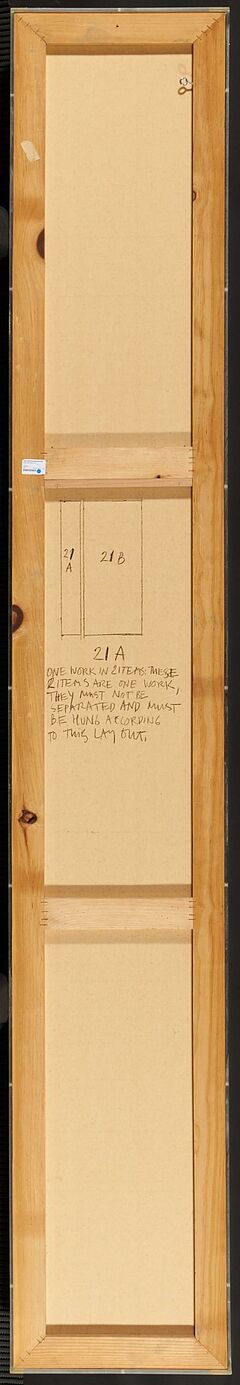 21 A
21 B
21 A
ONE WORK IN 2 ITEMS: THESE
2 ITEMS ARE ONE WORK,
THEY MUST NOT BE
SEPARATED AND MUST
BE HUNG ACCORDING
TO THIS LAY OUT.